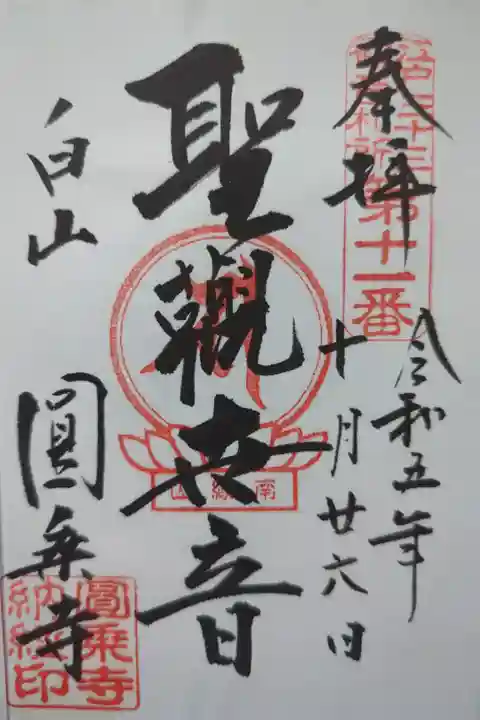 奉拝
第十一番
令和五年
十月廿六日
聖觀世音
白山
圓乗寺
圓乗寺
納経印